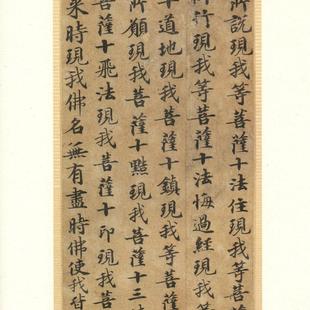 所說現我等菩薩十法住現我等菩薩
所行現我等菩薩十法悔過經現我等
道地現我菩薩十鎮現我等菩薩
所願現我菩薩十黠現我菩薩十三
菩薩十飛法現我菩薩十印現我菩
來時現我佛名無有盡時佛使我皆